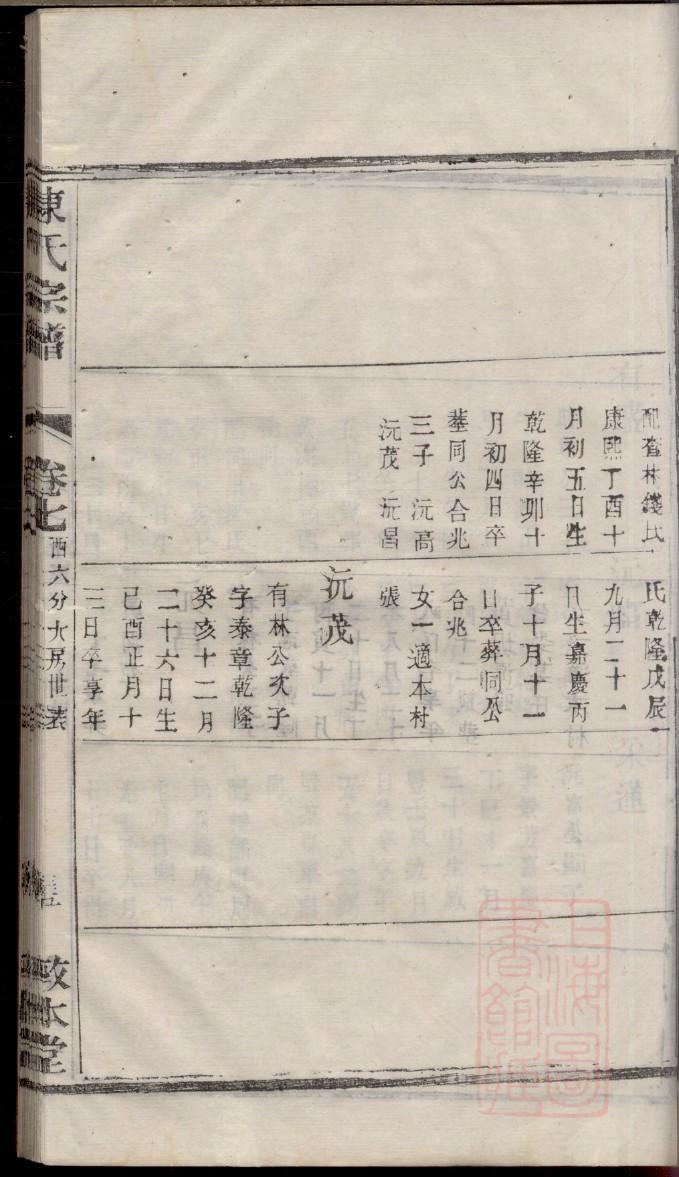 配查林錢氏
康熙丁酉十
月初五日生
乾隆辛卯十
月初四日卒
塟同公合兆
三子 沅高
沅茂 沅昌
氏乾隆戊辰
九月二十一
日生嘉慶丙
子十月十一
日卒葬同公
合兆
女一適本村
張
沅茂
有林公次子
字泰章乾隆
癸亥十二月
二十六日生
己酉正月十
三日卒享年
陳氏宗譜
卷七
酉六分大房世表
敦本堂
上海圖書館藏